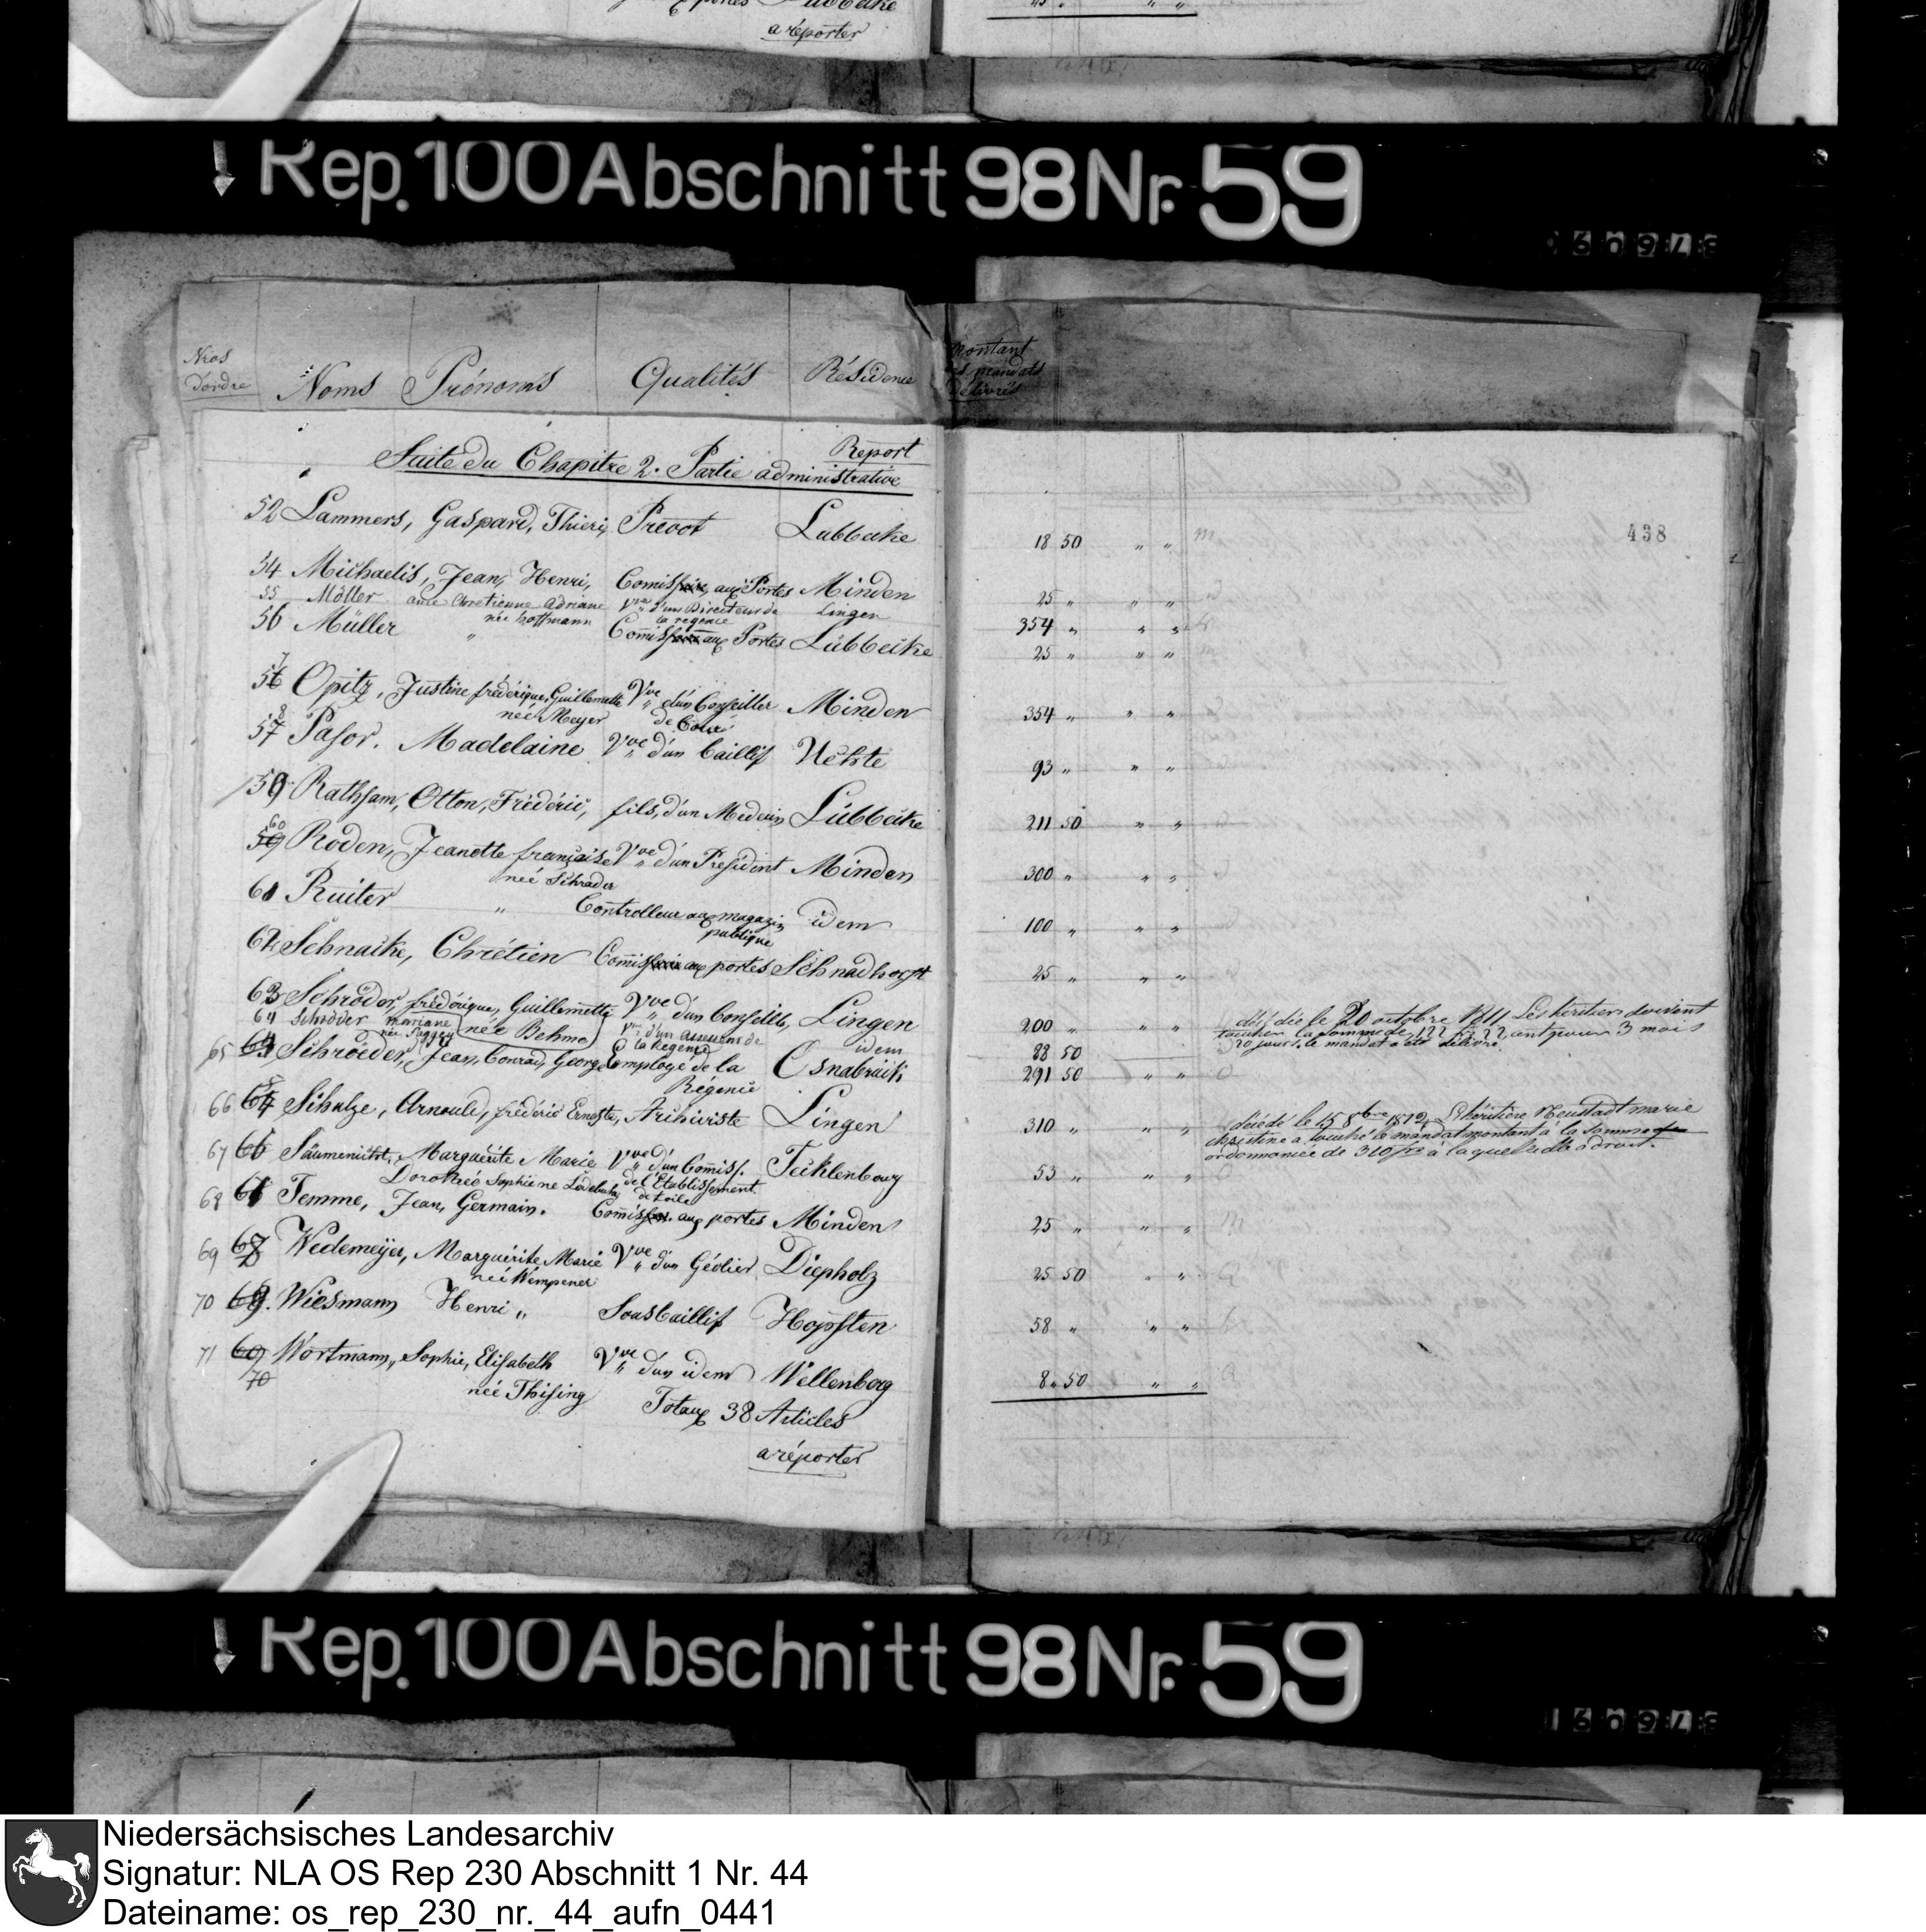 a réporter
Rep. 100 Abschnitt 98 Nr. 59
Nros d'ordre Noms Prénoms Qualités Résidence Montant des mandats délivrés
Report
Suite du Chapitre 2. Partie administrative
438
52 Lammers, Gaspard, Thieri, Prevot Lubbecke 18 50 " "
54 Michaelis, Jean, Henri, Comiss aux Portes Minden 25 " " "
55 Möller Chretienne Adriane Vve d'un Directeur de Lingen 354 " " "
née hoffmann la régence
56 Müller " Comiss aux Portes Lübbecke 25 " " "
57 Opitz, Justine frédérique, Guillemette Vve d'un Conseiller Minden 354 " " "
née Meyer de Cour
58 Pasor. Madelaine Vve d'un bailli Uchte 93 " " "
59 Rathsam, Otton, Frédéric, fils, d'un Medecin Lübbecke 211 50 " "
60 Roden, Jeanette française Vve d'un President Minden 300 " " "
née Schrader
61 Ruiter " Controlleur aux magazin idem 100 " " "
publique
62 Schnacke, Chrétien Comiss aux portes Schnadhorst 25 " " "
63 Schröder, frédérique, Guillemette Vve d'un Conseille, Lingen 200 " " "
née Behme
64 Schröder mariane Vve d'un de la Régence idem 88 50
65 Schröeder, Jean, Conrad, George Employé de la Osnabrück 291 50 " "
Régence
décédée le 20 octobre 1811 Les héritiers doivent
toucher la somme de 122 fr 22 cent pour 3 mois
20 jours, le mandat a été délivré.
66 64 Schulze, Arnould, frédéric Erneste, Archiviste Lingen 310 " " "
décédé le 15 8bre 1812 L'héritière Neustadt marie
christine a touché le mandat montant à la somme
ordonnancée de 310 frs à laquelle elle a droit.
67 66 Säumenicht, Marguerite Marie Vve d'un Comiss. Tecklenbourg 53 " " "
Dorothée Sophie né Ledebuhr de l'Etablissement
de toile
68 Temme, Jean, Germain. Comiss. aux portes Minden 25 " " "
69 67 Wedemeyer, Marguérite Marie Vve d'un Géolier Diepholz 25 50 " "
née Wempener
70 69. Wiesmann Henri " Sousbaillif Hopsten 58 " " "
71 69 Wortmann, Sophie, Elisabeth Vve d'un idem Wellenberg 8 " 50 " "
70
née Thising
Totaux 38 Articles
a réporter
Rep. 100 Abschnitt 98 Nr. 59
Niedersächsisches Landesarchiv
Signatur: NLA OS Rep 230 Abschnitt 1 Nr. 44
Dateiname: os_rep_230_nr._44_aufn_0441